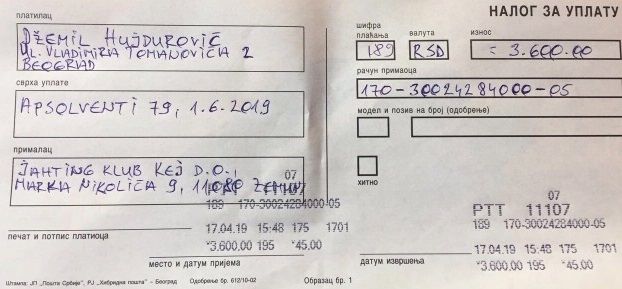 НАЛОГ ЗА УПЛАТУ
платилац
DŽEMIL HUJDUROVIĆ
UL. VLADIMIRA TOMANOVIĆA 2
BEOGRAD
сврха уплате
APSOLVENTI 79, 1.6.2019
прималац
JAHTING KLUB KEJ D.O.,
MARKA NIKOLIĆA 9, 11080 ZEMUN
07
PTT 11107
189 170-30024284000-05
17.04.19 15:48 175 1701
*3.600,00 195 *45,00
печат и потпис платиоца
место и датум пријема
шифра плаћања
189
валута
RSD
износ
= 3.600.00
рачун примаоца
170-30024284000-05
модел и позив на број (одобрење)
хитно
07
PTT 11107
189 170-30024284000-05
17.04.19 15:48 175 1701
*3.600,00 195 *45,00
датум извршења
Штампа: ЈП „Пошта Србије", РЈ „Хибридна пошта" – Београд Одобрење бр. 612/10-02
Образац бр. 1